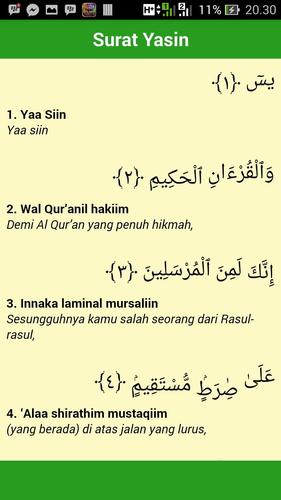 11% 20.30
Surat Yasin
يسٓ ﴿١﴾
1. Yaa Siin
Yaa siin
وَٱلْقُرْءَانِ ٱلْحَكِيمِ ﴿٢﴾
2. Wal Qur'anil hakiim
Demi Al Qur'an yang penuh hikmah,
إِنَّكَ لَمِنَ ٱلْمُرْسَلِينَ ﴿٣﴾
3. Innaka laminal mursaliin
Sesungguhnya kamu salah seorang dari Rasul-
rasul,
عَلَىٰ صِرَٰطٍ مُّسْتَقِيمٍ ﴿٤﴾
4. 'Alaa shirathim mustaqiim
(yang berada) di atas jalan yang lurus,